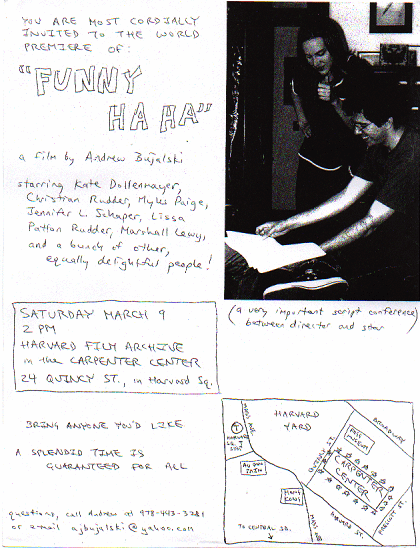 YOU ARE MOST CORDIALLY
INVITED TO THE WORLD
PREMIERE OF:
"FUNNY
HA HA"
a film by Andrew Bujalski
starring Kate Dollenmayer,
Christian Rudder, Myles Paige,
Jennifer L. Schaper, Lissa
Patton Rudder, Marshall Lewy,
and a bunch of other,
equally delightful people!
(a very important script conference
between director and star)
SATURDAY MARCH 9
2 PM
HARVARD FILM ARCHIVE
in the CARPENTER CENTER
24 QUINCY ST., in Harvard Sq.
BRING ANYONE YOU'D LIKE
A SPLENDID TIME IS
GUARANTEED FOR ALL
questions, call Andrew at 978-443-3281
or e-mail ajbujalski@yahoo.com
MASS AVE.
HARVARD
YARD
BROADWAY
T
HARVARD
SQ.
STOP
FOGG
MUSEUM
QUINCY ST.
CARPENTER
CENTER
AU BON
PAIN
HONG
KONG
PRESCOTT ST.
HARVARD ST.
MASS AVE
TO CENTRAL SQ.